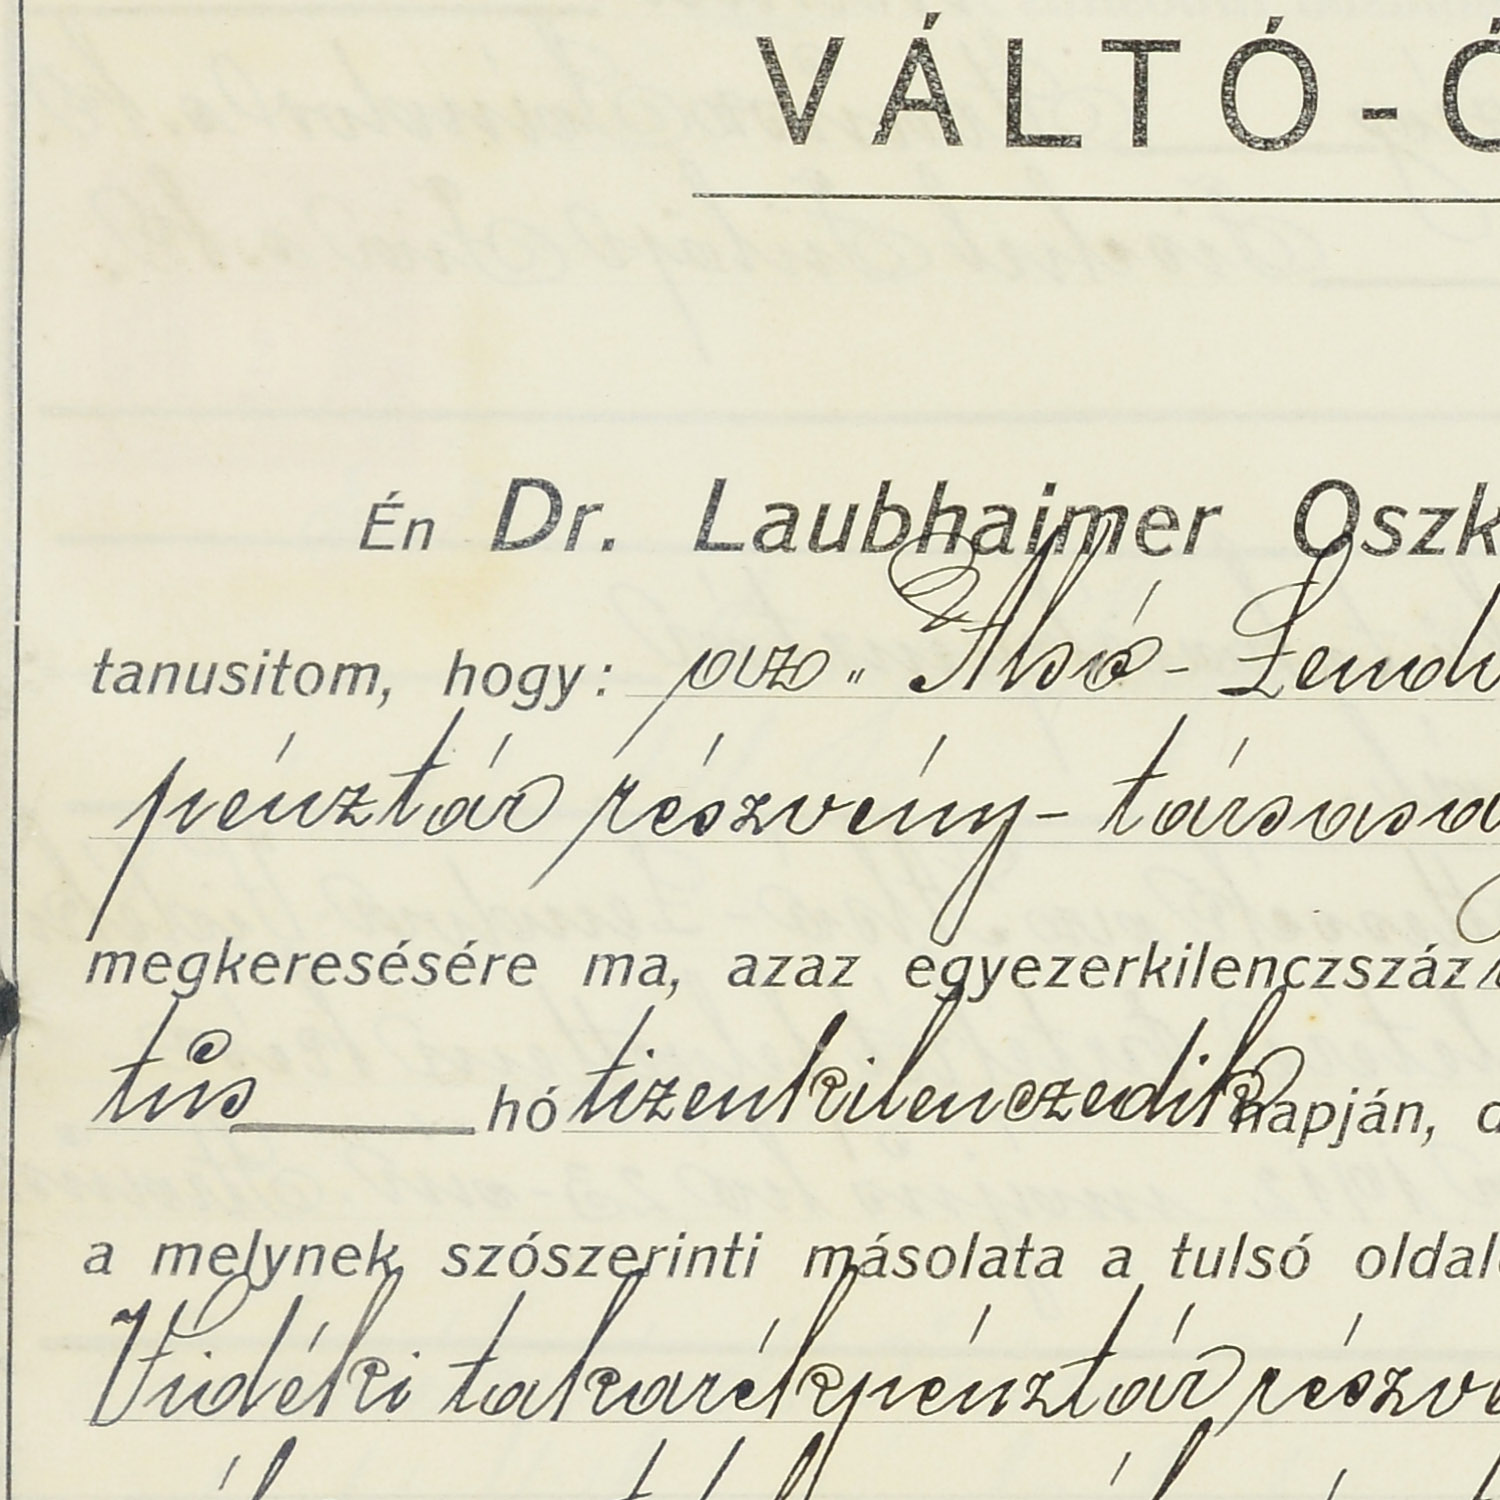 VÁLTÓ-Ó
Én Dr. Laubhaimer Oszk
tanusitom, hogy: az „Alsó-Lend
pénztár részvény-társasá
megkeresésére ma, azaz egyezerkilenczszáz
tus hó tizenkilenczedik napján, d
a melynek szószerinti másolata a tulsó oldal
Vidéki takarékpénztár részvé